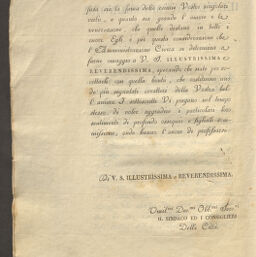 tata sia la forza delle esimie Vostre singolari
virtù, e quanto sia grande l'amore e la
venerazione, che quelle destano in tutti i
cuori. Egli è per questa considerazione che
l'Amministrazione Civica si determina a
farne omaggio a V. S. ILLUSTRISSIMA e
REVERENDISSIMA, sperando che siate per ac-
cettarli con quella bontà, che costituisce uno
de' più segnalati caratteri della Vostra bel-
l'anima. I sottoscritti Vi pregano nel tempo
stesso di voler aggradire i particolari loro
sentimenti di profondo ossequio e figliale som-
missione, onde hanno l'onore di professarsi
Di V. S. ILLUSTRISSIMA e REVERENDISSIMA.
Umil.mi Dev.mi Obb.mi Serv.i
IL SINDACO ED I CONSIGLIERI
Della Città